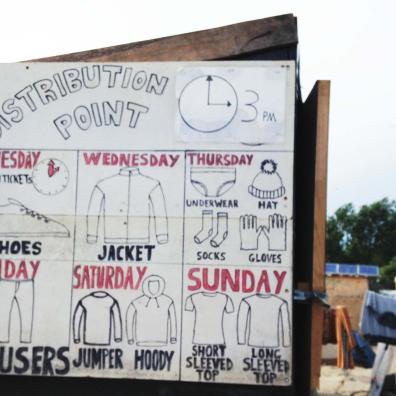 DISTRIBUTION
POINT
3 PM
ESDAY
TICKETS
HOES
WEDNESDAY
JACKET
THURSDAY
UNDERWEAR HAT
SOCKS GLOVES
IDAY
USERS
SATURDAY
JUMPER HOODY
SUNDAY
SHORT SLEEVED TOP
LONG SLEEVED TOP